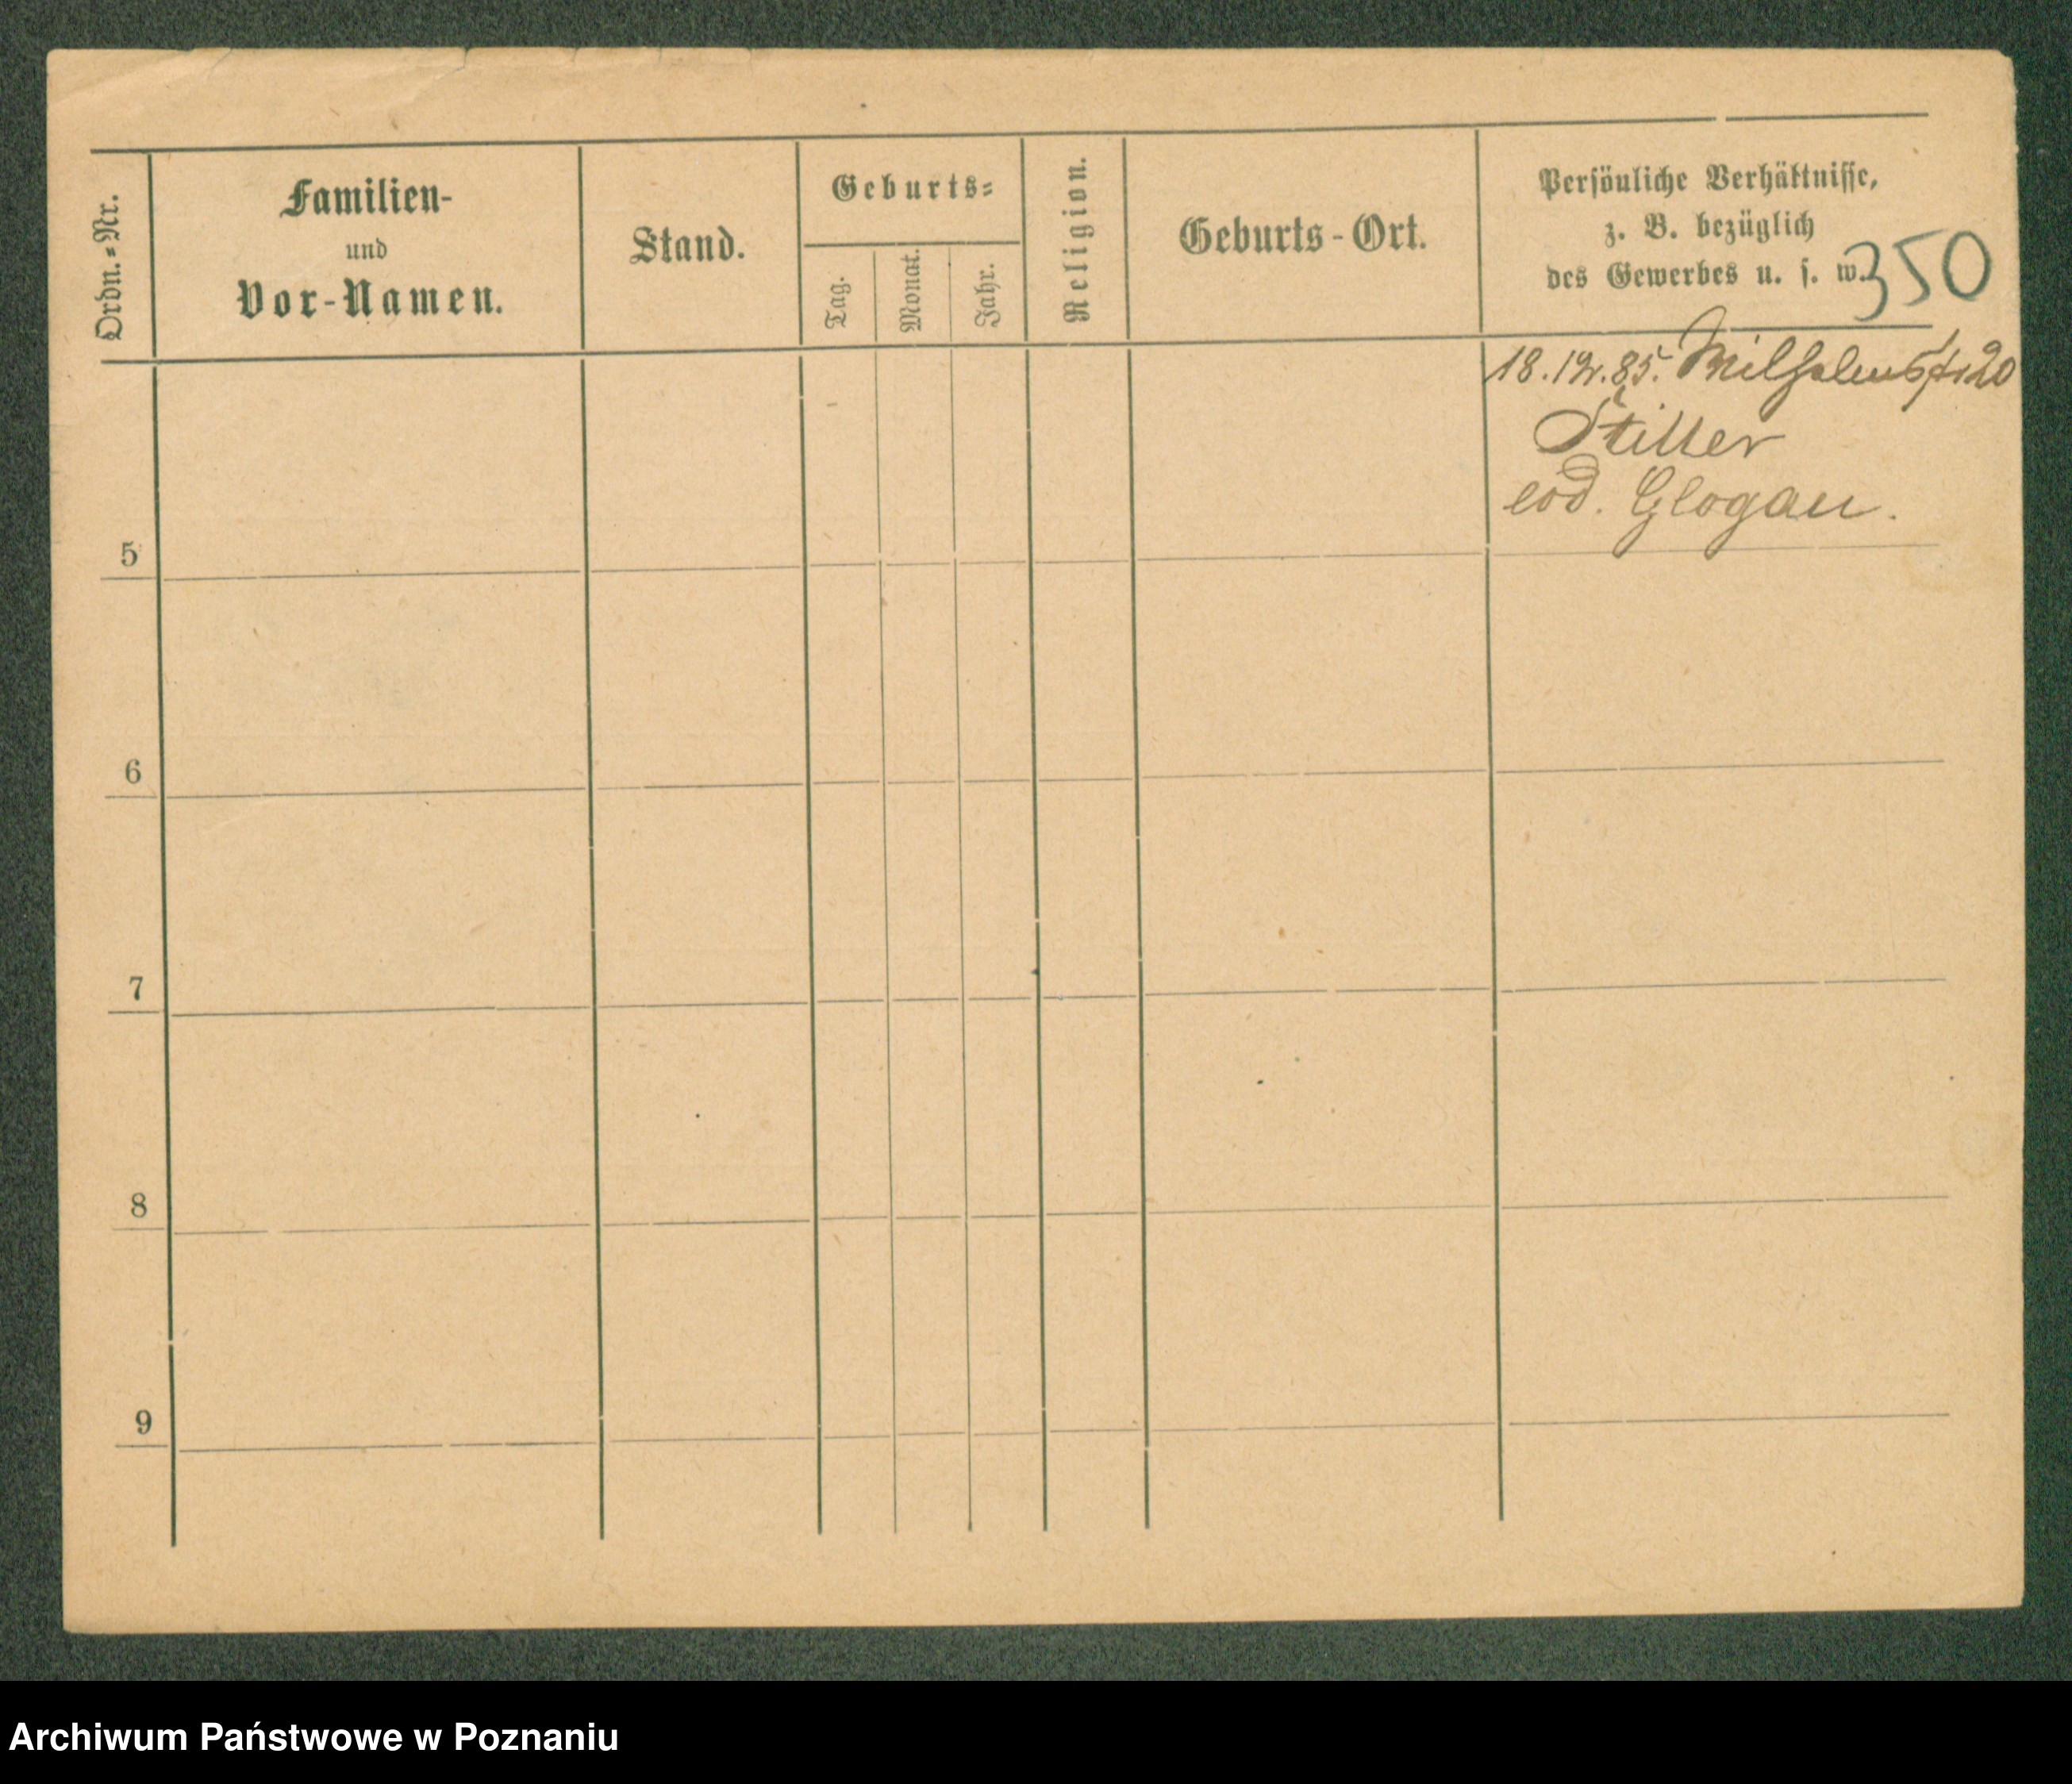 Ordn.=Nr.
Familien-
und
Vor-Namen.
Stand.
Geburts=
Tag.
Monat.
Jahr.
Religion.
Geburts-Ort.
Persönliche Verhältnisse,
z. B. bezüglich
des Gewerbes u. s. w.
350
18. 12. 85. 20
Stiller
eod. Glogau.
5
6
7
8
9
Archiwum Państwowe w Poznaniu